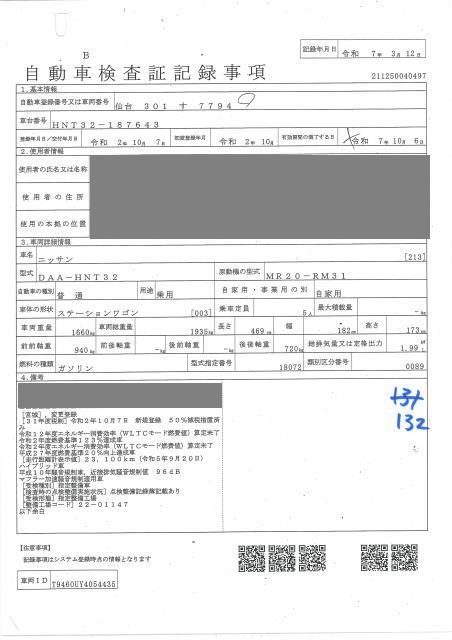 B
記録年月日 令和 7年 3月12日
自動車検査証記録事項
211250040497
1.基本情報
自動車登録番号又は車両番号 仙台 301 す 7794
車台番号 HNT32-187643
登録年月日/交付年月日 令和 2年10月 7日 初度登録年月 令和 2年10月 有効期間の満了する日 令和 7年10月 6日
2.使用者情報
使用者の氏名又は名称
使用者の住所
使用の本拠の位置
3.車両詳細情報
車名 ニッサン [213]
型式 DAA-HNT32 原動機の型式 MR20-RM31
自動車の種別 普通 用途 乗用 自家用・事業用の別 自家用
車体の形状 ステーションワゴン [003] 乗車定員 5人 最大積載量 -kg
車両重量 1660kg 車両総重量 1935kg 長さ 469cm 幅 182cm 高さ 173cm
前前軸重 940kg 前後軸重 -kg 後前軸重 -kg 後後軸重 720kg 総排気量又は定格出力 1.99L
燃料の種類 ガソリン 型式指定番号 18072 類別区分番号 0089
4.備考
[宮城],変更登録
[31年度税制]令和2年10月7日 新規登録 50%減税措置済
み
令和12年度エネルギー消費効率(WLTCモード燃費値)算定未了
令和2年度燃費基準123%達成車
令和2年度エネルギー消費効率(WLTCモード燃費値)算定未了
平成27年度燃費基準20%向上達成車
[走行距離計表示値]23,100km(令和5年9月20日)
ハイブリッド車
平成10年騒音規制車,近接排気騒音規制値 96dB
マフラー加速騒音規制適用車
[受検種別]指定整備車
[検査時の点検整備実施状況]点検整備記録簿記載あり
[受検形態]指定整備工場
[整備工場コード]22-01147
以下余白
131
132
【注意事項】
記録事項はシステム登録時点の情報となります
車両ID T9460UY4054435